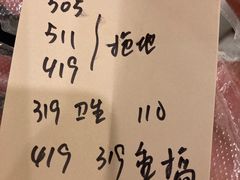 505
511
419 } 拖地
319 卫生 110
419 319 重搞